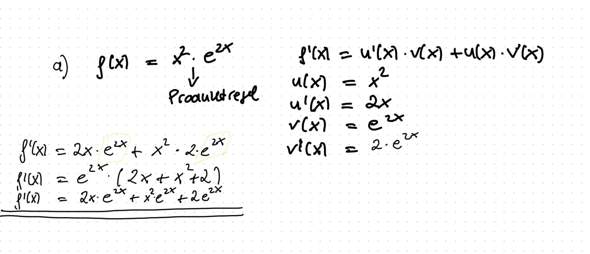 a) f(x) = x² · e^2x
↓
Produktregel
f'(x) = u'(x) · v(x) + u(x) · v'(x)
u(x) = x²
u'(x) = 2x
v(x) = e^2x
v'(x) = 2 · e^2x
f'(x) = 2x · e^2x + x² · 2 · e^2x
f'(x) = e^2x · (2x + x² + 2)
f'(x) = 2x · e^2x + x² e^2x + 2e^2x